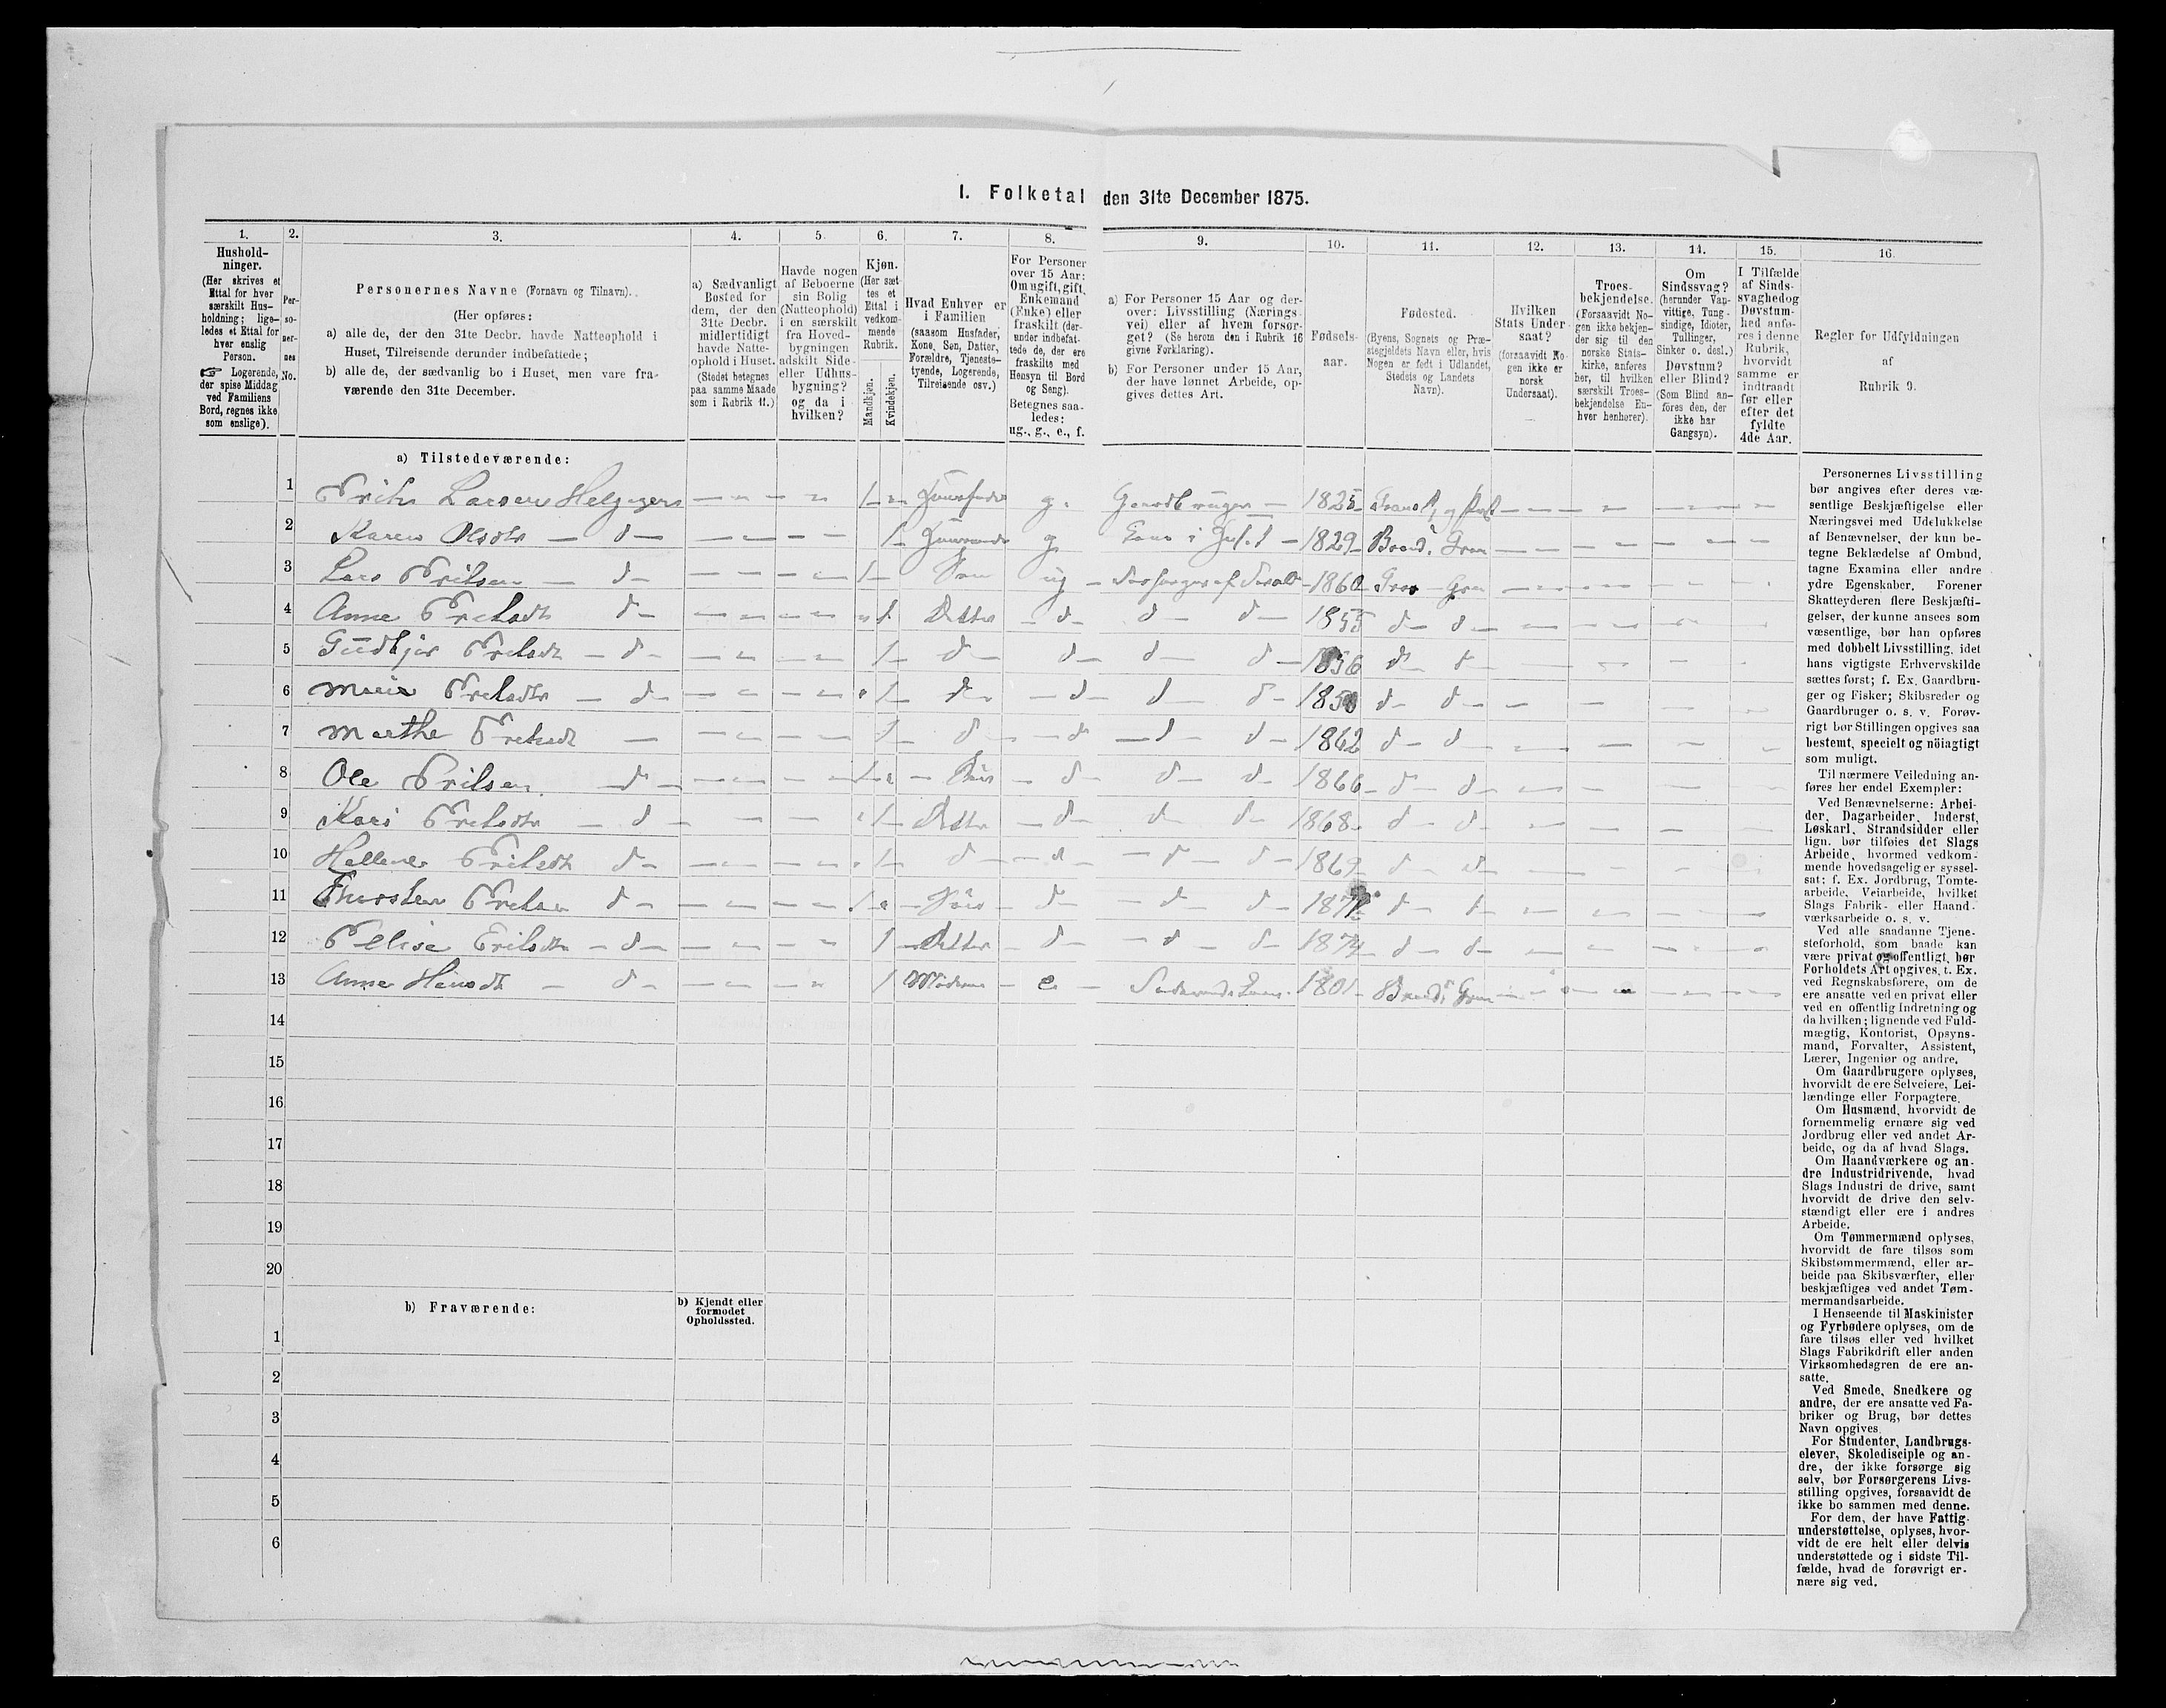 I. Folketal den 31te December 1875.
1. 2. 3. 4. 5. 6. 7. 8. 9. 10. 11. 12. 13. 14. 15. 16.
Hushold-
ninger.
(Her skrives et
Ettal for hver
særskilt Hus-
holdning; lige-
ledes et Ettal for
hver enslig
Person.
☞ Logerende,
der spise Middag
ved Familiens
Bord, regnes ikke
som enslige).
Per-
so-
ner-
nes
No.
Personernes Navne (Fornavn og Tilnavn).
(Her opføres:
a) alle de, der den 31te Decbr. havde Natteophold i
Huset, Tilreisende derunder indbefattede;
b) alle de, der sædvanlig bo i Huset, men vare fra-
værende den 31te December.
a) Sædvanligt
Bosted for
dem, der den
31te Decbr.
midlertidigt
havde Natte-
ophold i Huset.
(Stedet betegnes
paa samme Maade
som i Rubrik 11.)
Havde nogen
af Beboerne
sin Bolig
(Natteophold)
i en særskilt
fra Hoved-
bygningen
adskilt Side-
eller Udhus-
bygning?
og da i
hvilken?
Kjøn.
(Her sæt-
tes et
Ettal i
vedkom-
mende
Rubrik.
Mandkjøn.
Kvindekjøn.
Hvad Enhver er
i Familien
(saasom Husfader,
Kone, Søn, Datter,
Forældre, Tjeneste-
tyende, Logerende,
Tilreisende osv.)
For Personer
over 15 Aar:
Om ugift, gift,
Enkemand
(Enke) eller
fraskilt (der-
under indbefat-
tede de, der ere
fraskilte med
Hensyn til Bord
og Seng).
Betegnes saa-
ledes:
ug., g., e., f.
a) For Personer 15 Aar og der-
over: Livsstilling (Nærings-
vei) eller af hvem forsør-
get? (Se herom den i Rubrik 16
givne Forklaring).
b) For Personer under 15 Aar,
der have lønnet Arbeide, op-
gives dettes Art.
Fødsels-
aar.
Fødested.
(Byens, Sognets og Præ-
stegjeldets Navn eller, hvis
Nogen er født i Udlandet,
Stedets og Landets
Navn).
Hvilken
Stats Under-
saat?
(forsaavidt No-
gen ikke er
norsk
Undersaat).
Troes-
bekjendelse.
(Forsaavidt No-
gen ikke bekjen-
der sig til den
norske Stats-
kirke, anføres
her, til hvilken
særskilt Troes-
bekjendelse En-
hver henhører).
Om
Sindssvag?
(herunder Van-
vittige, Tung-
sindige, Idioter,
Tullinger,
Sinker o. desl.)
Døvstum?
eller Blind?
(Som Blind an-
føres den, der
ikke har
Gangsyn).
I Tilfælde
af Sinds-
svaghed og
Døvstum-
hed anfø-
res i denne
Rubrik,
hvorvidt
samme er
indtraadt
før eller
efter det
fyldte
4de Aar.
Regler for Udfyldningen
af
Rubrik 9.
a) Tilstedeværende:
1 Larsen g. Gaardbruger 1825
2 Karen Olsdtr d g 1829 Brand. Gran
3 Lars d Søn ug 1860 Gran
4 Anne d d d d 1855 d d
5 d d d d d 1856 d d
6 Maria d d d d d d d
7 Marthe d d d d 1862 d d
8 Ole d d d d 1866 d d
9 Kari d d d d 1868 d d
10 d d d d d 1869 d d
11 d d d d d d
12 d d d d 1874 d d
13 Anne d Moderen e. 1801 Brand. Gran
14
15
16
17
18
19
20
b) Fraværende:
b) Kjendt eller
formodet
Opholdssted.
1
2
3
4
5
6
Personernes Livsstilling
bør angives efter deres væ-
sentlige Beskjæftigelse eller
Næringsvei med Udelukkelse
af Benævnelser, der kun be-
tegne Beklædelse af Ombud,
tagne Examina eller andre
ydre Egenskaber. Forener
Skatteyderen flere Beskjæfti-
gelser, der kunne ansees som
væsentlige, bør han opføres
med dobbelt Livsstilling, idet
hans vigtigste Erhvervskilde
sættes først; f. Ex. Gaardbru-
ger og Fisker; Skibsreder og
Gaardbruger o. s. v. Forøv-
rigt bør Stillingen opgives saa
bestemt, specielt og nöiagtigt
som muligt.
Til nærmere Veiledning an-
føres her endel Exempler:
Ved Benævnelserne: Arbei-
der, Dagarbeider, Inderst,
Løskarl, Strandsidder eller
lign. bør tilføies det Slags
Arbeide, hvormed vedkom-
mende hovedsagelig er syssel-
sat; f. Ex. Jordbrug, Tomte-
arbeide, Veiarbeide, hvilket
Slags Fabrik- eller Haand-
værksarbeide o. s. v.
Ved alle saadanne Tjene-
steforhold, som baade kan
være privat og offentligt, bør
Forholdets Art opgives, t. Ex.
ved Regnskabsførere, om de
ere ansatte ved en privat eller
ved en offentlig Indretning og
da hvilken; lignende ved Fuld-
mægtig, Kontorist, Opsyns-
mand, Forvalter, Assistent,
Lærer, Ingeniør og andre.
Om Gaardbrugere oplyses,
hvorvidt de ere Selveiere, Lei-
lændinge eller Forpagtere.
Om Husmænd, hvorvidt de
fornemmelig ernære sig ved
Jordbrug eller ved andet Ar-
beide, og da af hvad Slags.
Om Haandværkere og an-
dre Industridrivende, hvad
Slags Industri de drive, samt
hvorvidt de drive den selv-
stændigt eller ere i andres
Arbeide.
Om Tømmermænd oplyses,
hvorvidt de fare tilsøs som
Skibstømmermænd, eller ar-
beide paa Skibsværfter, eller
beskjæftiges ved andet Tøm-
mermandsarbeide.
I Henseende til Maskinister
og Fyrbødere oplyses, om de
fare tilsøs eller ved hvilket
Slags Fabrikdrift eller anden
Virksomhedsgren de ere an-
satte.
Ved Smede, Snedkere og
andre, der ere ansatte ved Fa-
briker og Brug, bør dettes
Navn opgives.
For Studenter, Landbrugs-
elever, Skoledisciple og an-
dre, der ikke forsørge sig
selv, bør Forsørgerens Livs-
stilling opgives, forsaavidt de
ikke bo sammen med denne.
For dem, der have Fattig-
understøttelse, oplyses, hvor-
vidt de ere helt eller delvis
understøttede og i sidste Til-
fælde, hvad de forøvrigt er-
nære sig ved.